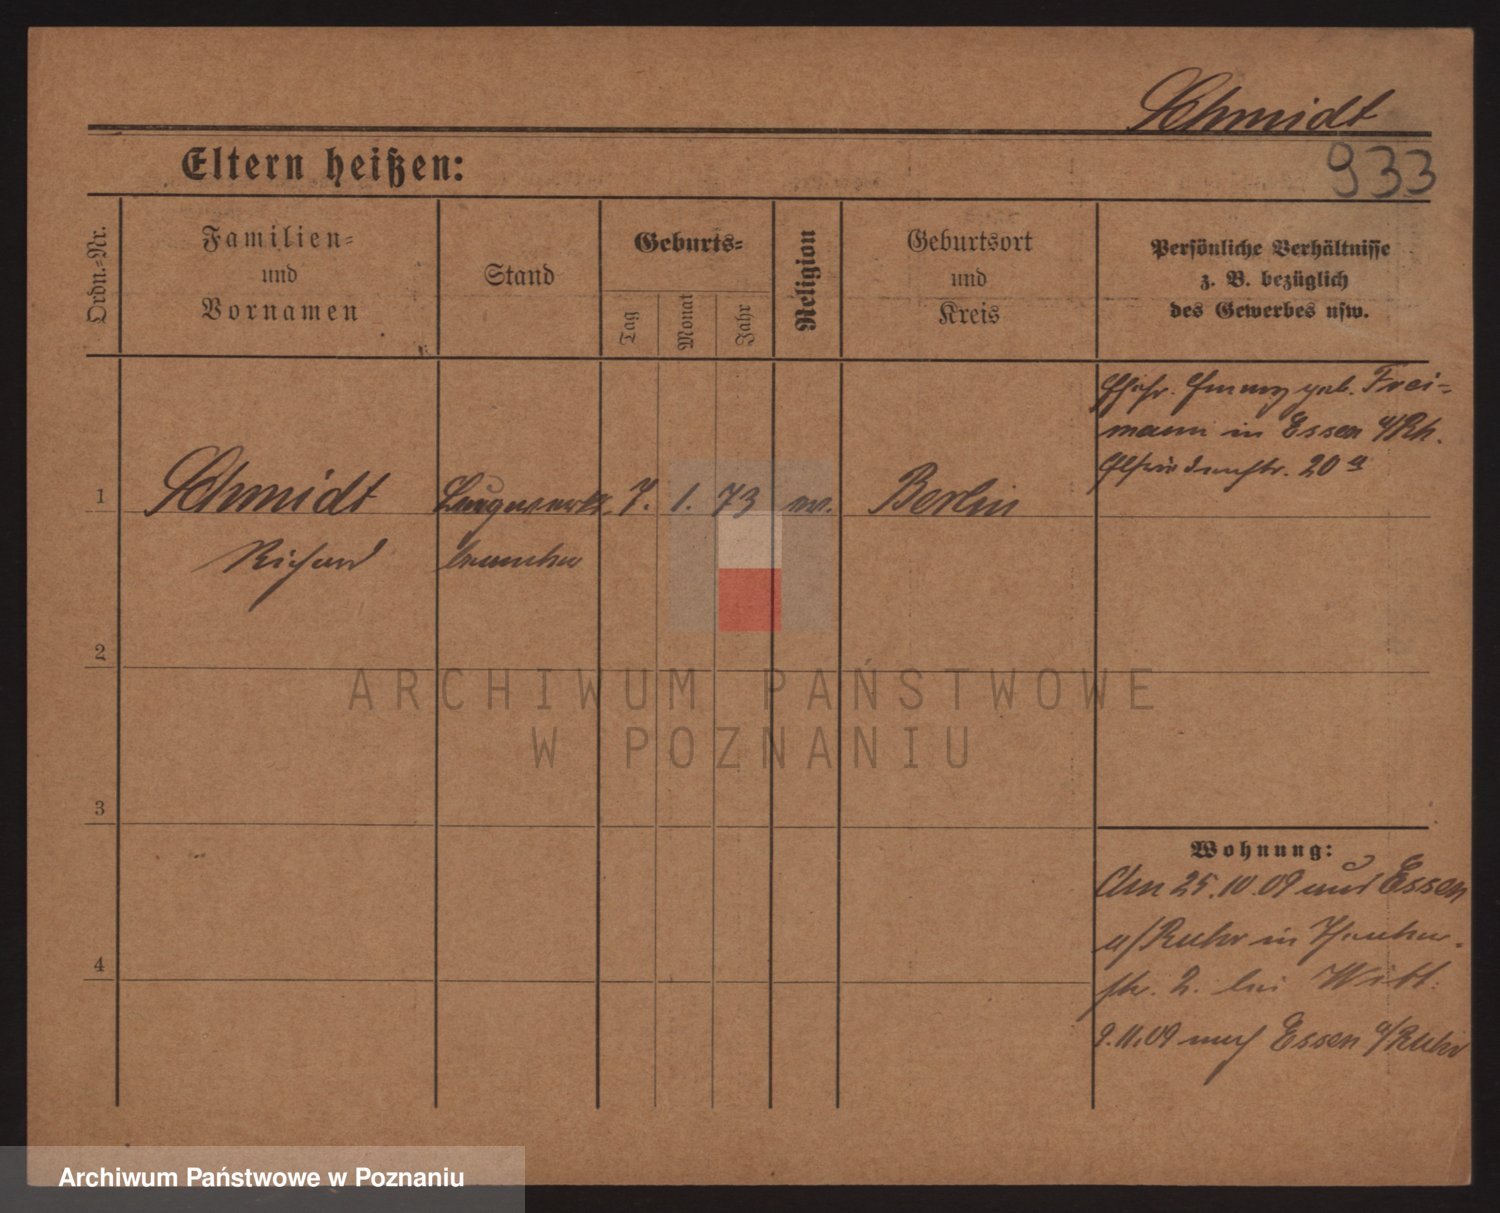 Schmidt
Eltern heißen:
933
Ordn.-Nr.
Familien-
und
Vornamen
Stand
Geburts-
Tag
Monat
Jahr
Religion
Geburtsort
und
Kreis
Persönliche Verhältnisse
z. B. bezüglich
des Gewerbes usw.
Ehefr. Emmy geb. Frei-
mann in Essen a/Rh.
20a
1
Schmidt
7. 1. 73 ev. Berlin
Richard
2
3
4
Wohnung:
Am 25.10.09 aus Essen
a/Ruhr in
str. 2. bei Witt.
9.11.09 nach Essen a/Ruhr
ARCHIWUM PAŃSTWOWE
W POZNANIU
Archiwum Państwowe w Poznaniu